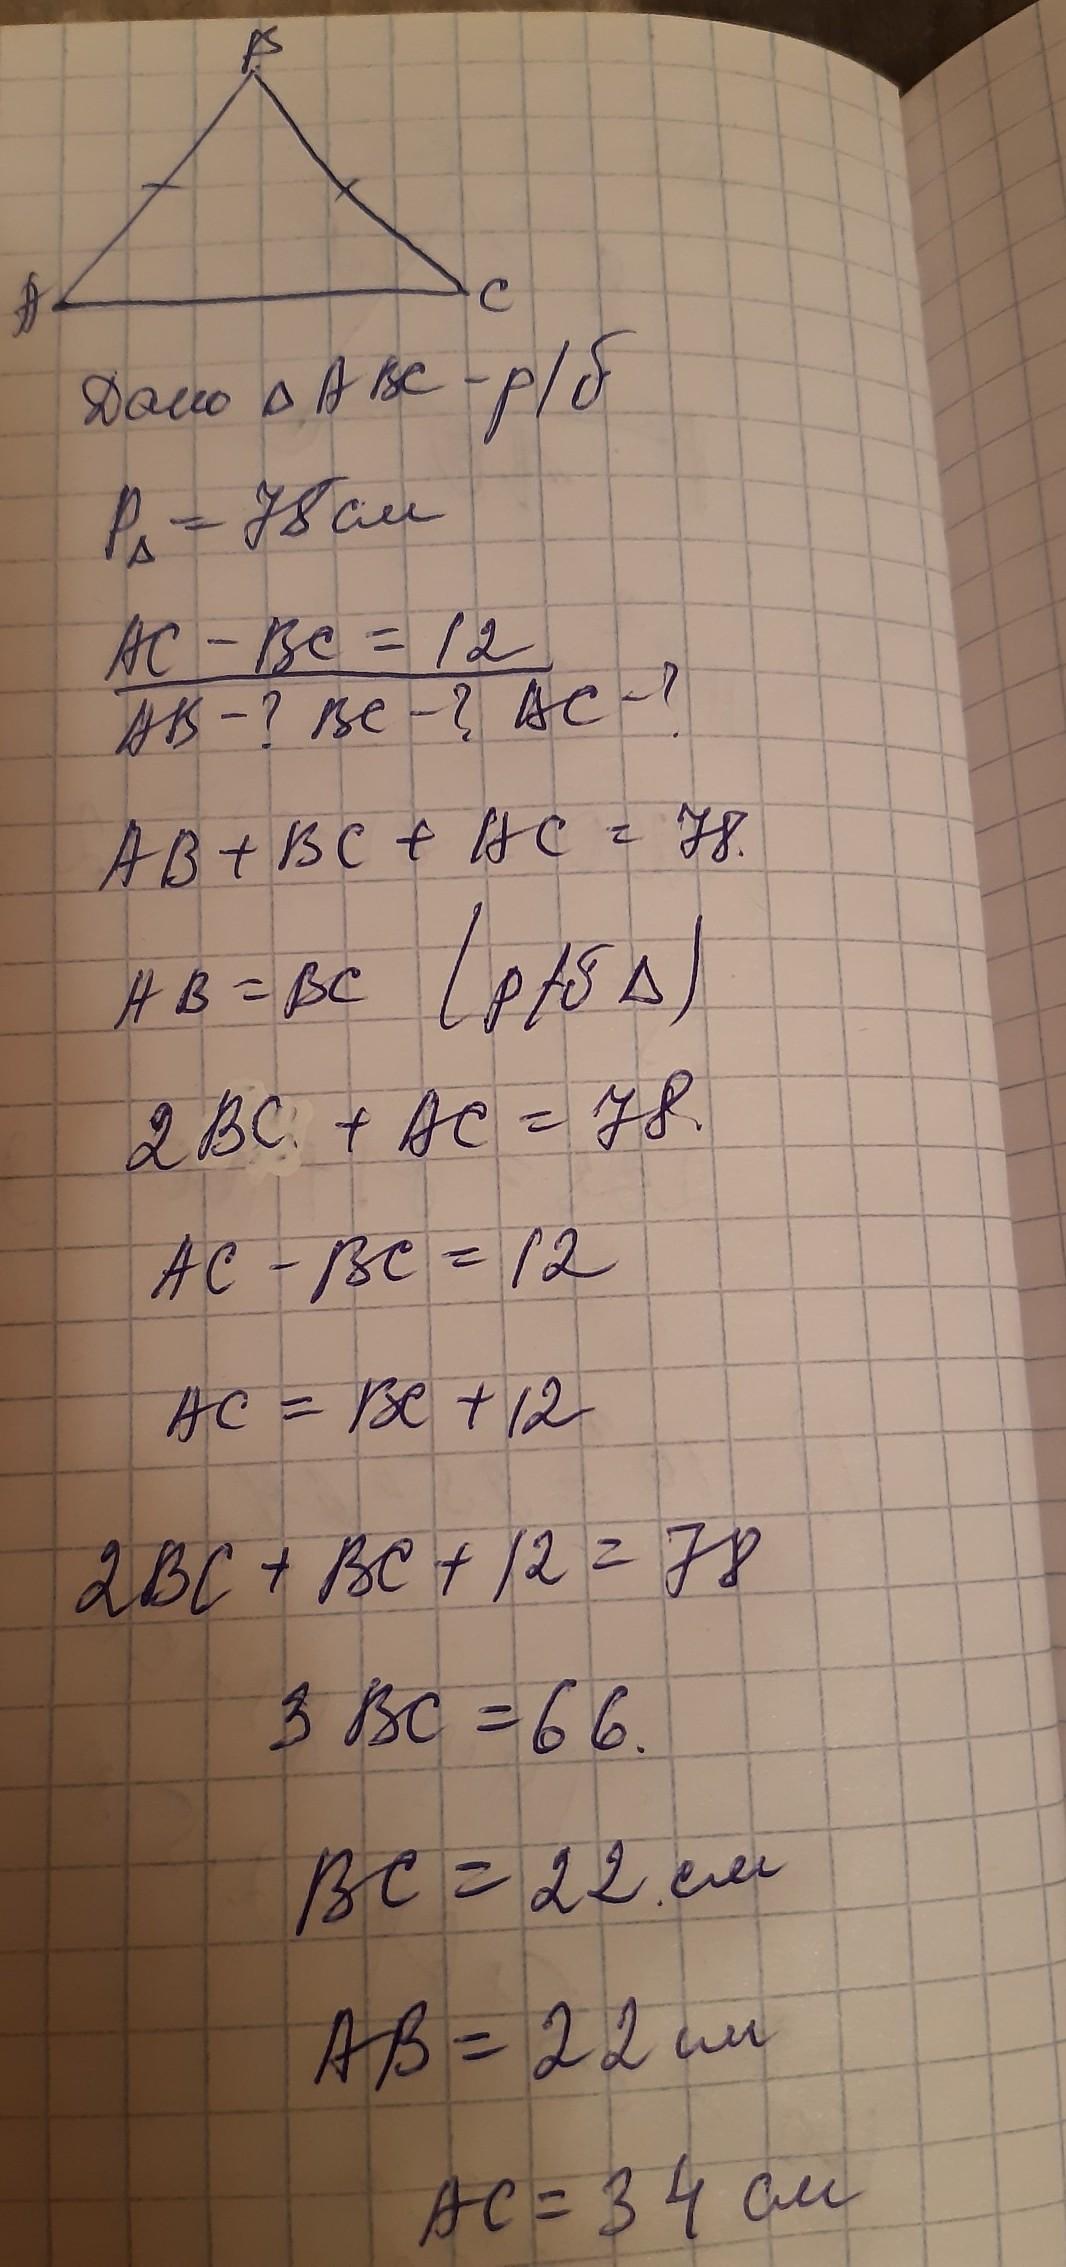 B
A C
Дано △ ABC - р/б
P△ = 78 см
AC - BC = 12
AB - ? BC - ? AC - ?
AB + BC + AC = 78.
AB = BC (р/б △)
2BC + AC = 78.
AC - BC = 12
AC = BC + 12
2BC + BC + 12 = 78
3 BC = 66.
BC = 22 см
AB = 22 см
AC = 34 см